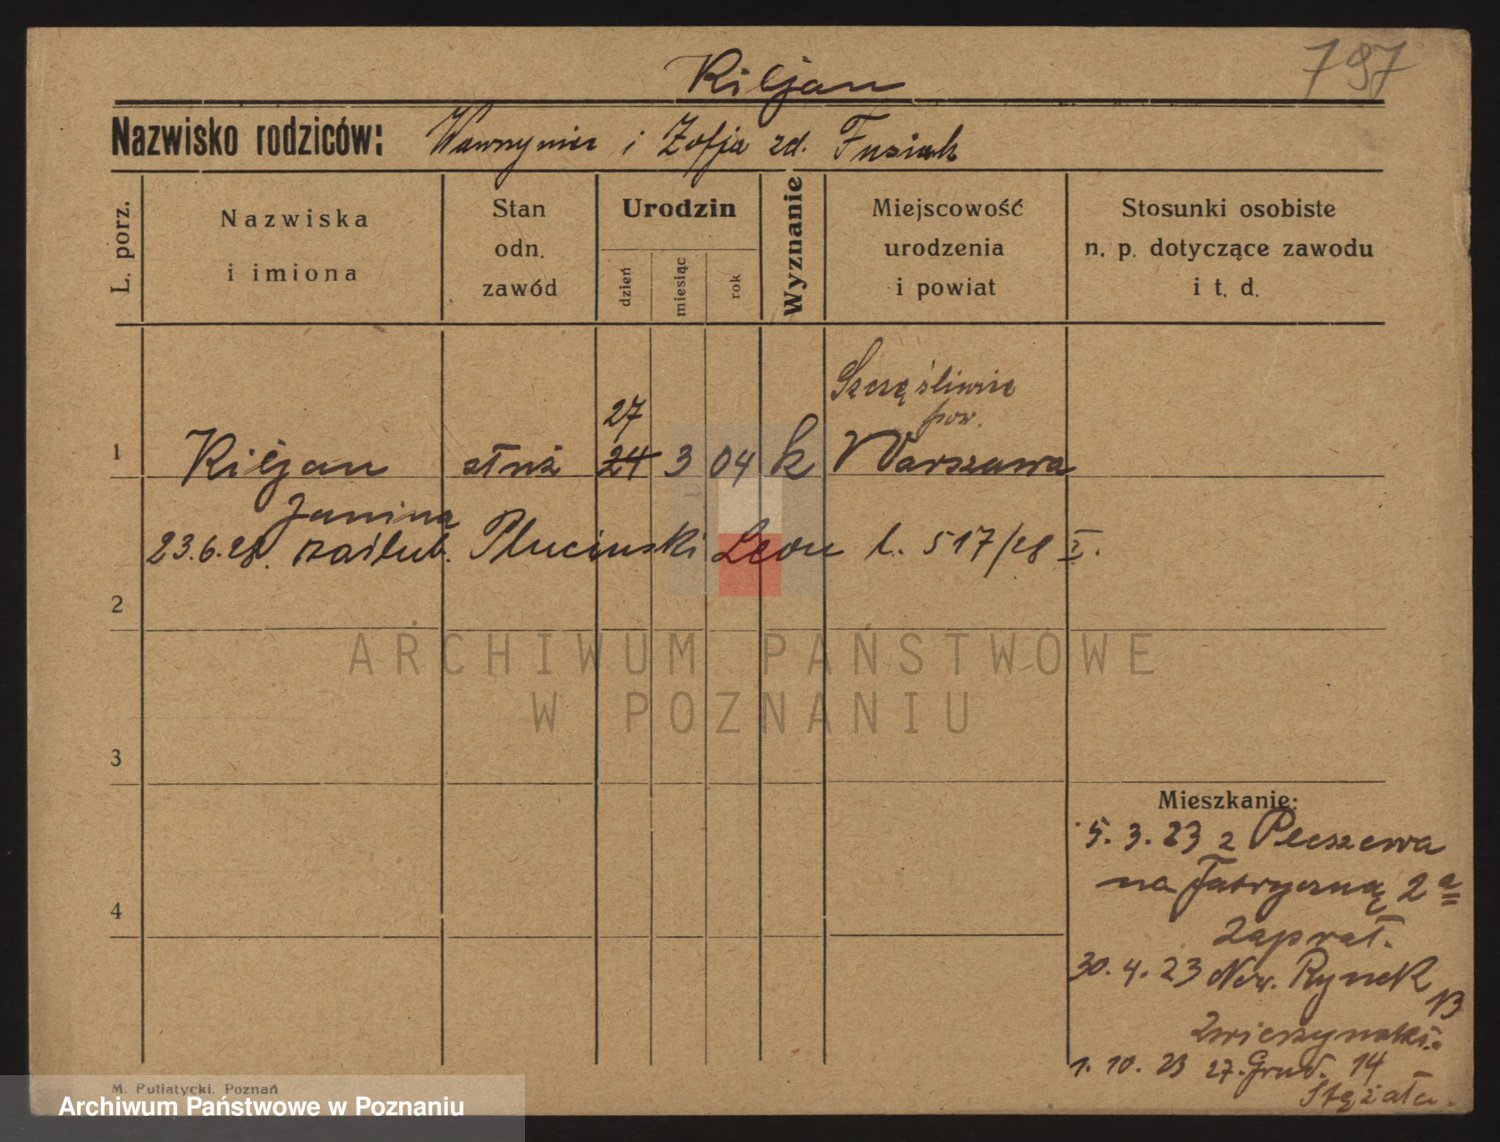 Kiljan
797
Nazwisko rodziców: Wawrzyniec i Zofja zd. Fusiak
L. porz.
Nazwiska
i imiona
Stan
odn.
zawód
Urodzin
dzień
miesiąc
rok
Wyznanie
Miejscowość
urodzenia
i powiat
Stosunki osobiste
n. p. dotyczące zawodu
i t. d.
Szczęśliwie
pow.
27
1 Kiljan służ 24 3 04 k Warszawa
Janina
23.6.28. zaślub. Pluciński Leon l. 517/28 I.
2
ARCHIWUM PAŃSTWOWE
W POZNANIU
3
Mieszkanie:
5.3.23 z Pleszewa
na Fabryczną 2a
4
30.4.23 Now. Rynek
13
1.10.23 27. Grud. 14
M. Putiatycki, Poznań
Archiwum Państwowe w Poznaniu